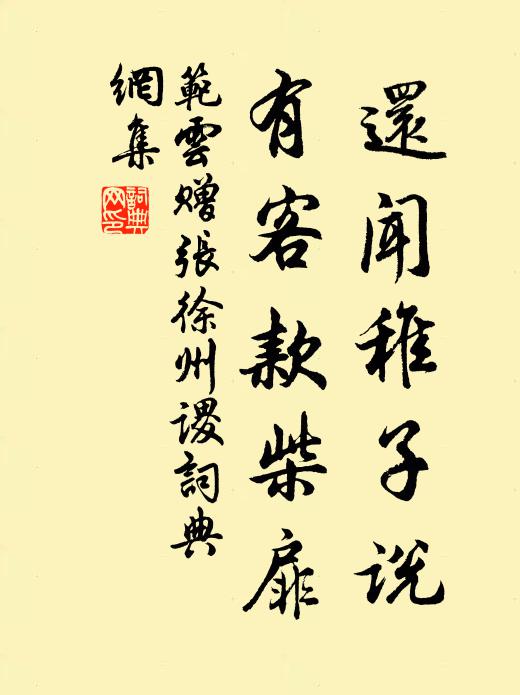 還聞稚子說
有客款柴扉
範雲贈張徐州謖詞典
網集
詞典網印